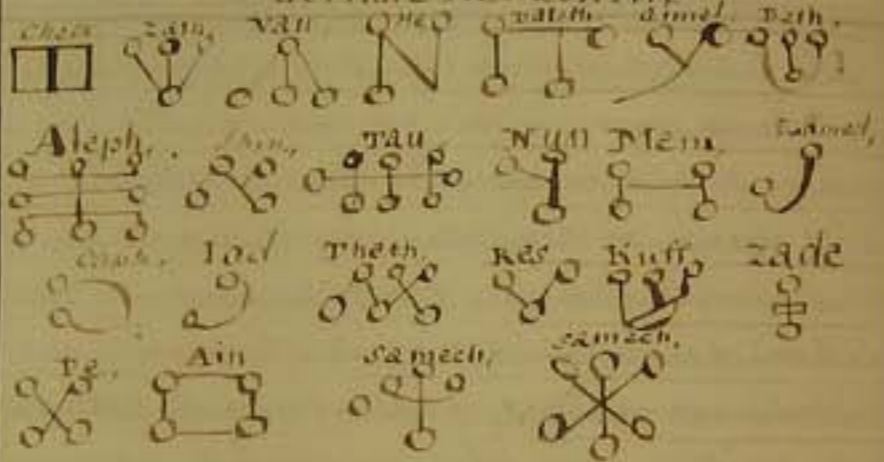 Zain, Vau, He Daleth Gimel, Beth,
Aleph, Shin, Tau Nun Mem, Lamed,
Caph, Iod Theth, Res Kuff, Zade
Pe, Ain Samech, Samech,